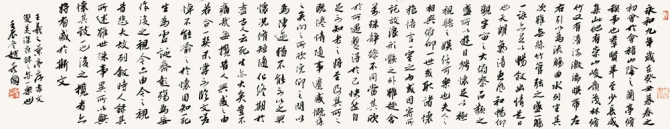 永和九年歲在癸丑暮春之
初會於會稽山陰之蘭亭脩
禊事也羣賢畢至少長咸
集此地有崇山峻領茂林脩
竹又有清流激湍映帶左
右引以為流觴曲水列坐其
次雖無絲竹管弦之盛一觴
一詠亦足以暢敘幽情是日
也天朗氣清惠風和暢仰
觀宇宙之大俯察品類之
盛所以遊目騁懷足以極
視聽之娛信可樂也夫人之
相與俯仰一世或取諸懷
抱悟言一室之內或因寄所
託放浪形骸之外雖趣舍
萬殊靜躁不同當其欣
於所遇暫得於己快然自足
不知老之將至及其所之
既惓情隨事遷感慨係
之矣向之所欣俛仰之間以
為陳迹猶不能不以之興
懷況脩短隨化終期於
盡古人云死生亦大矣豈不
痛哉每攬昔人興感之由
若合一契未嘗不臨文嗟
悼不能喻之於懷固知死
生為虛誕齊彭殤為妄
作後之視今亦由今之視
昔悲夫故列敘時人錄其
所述雖世殊事異所以興
懷其致一也後之攬者亦
將有感於斯文
王羲之蘭亭序